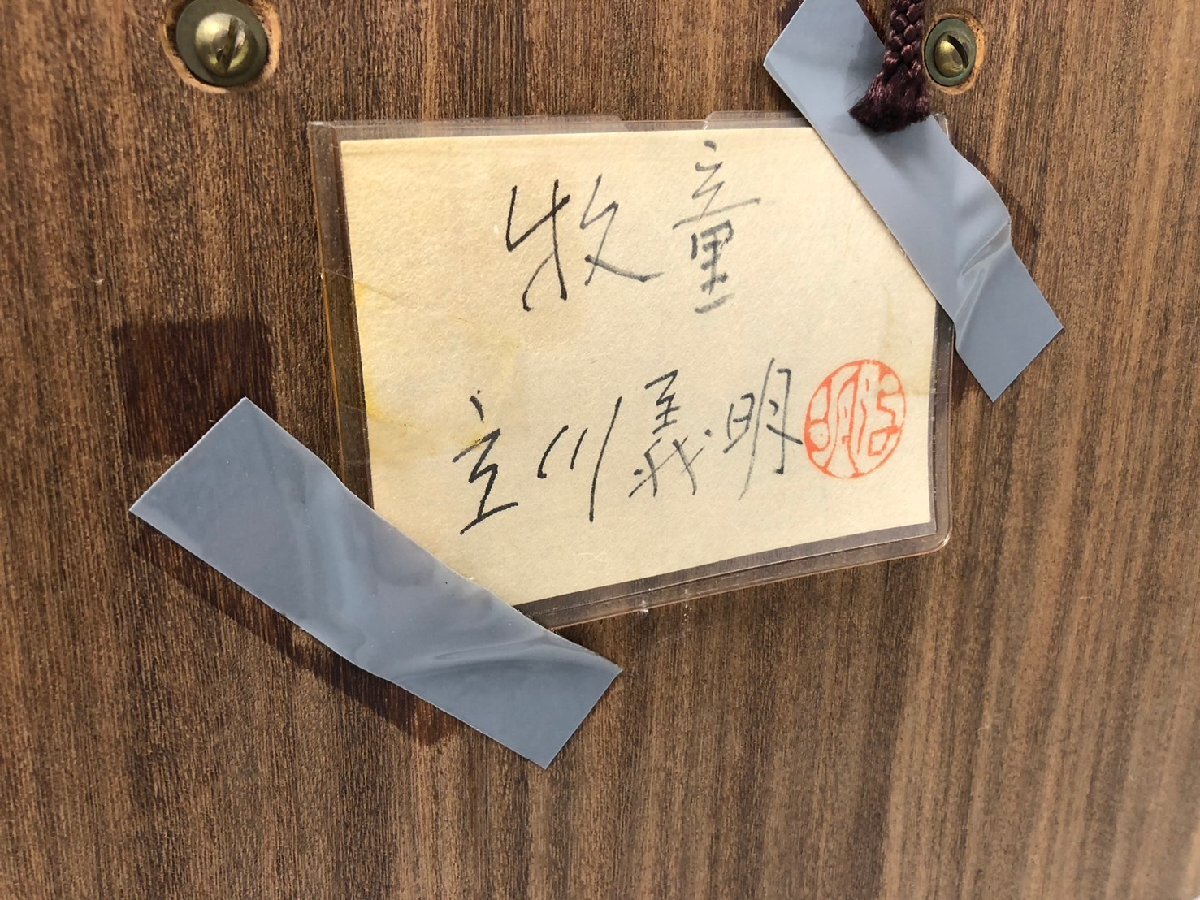 牧童
立川義明